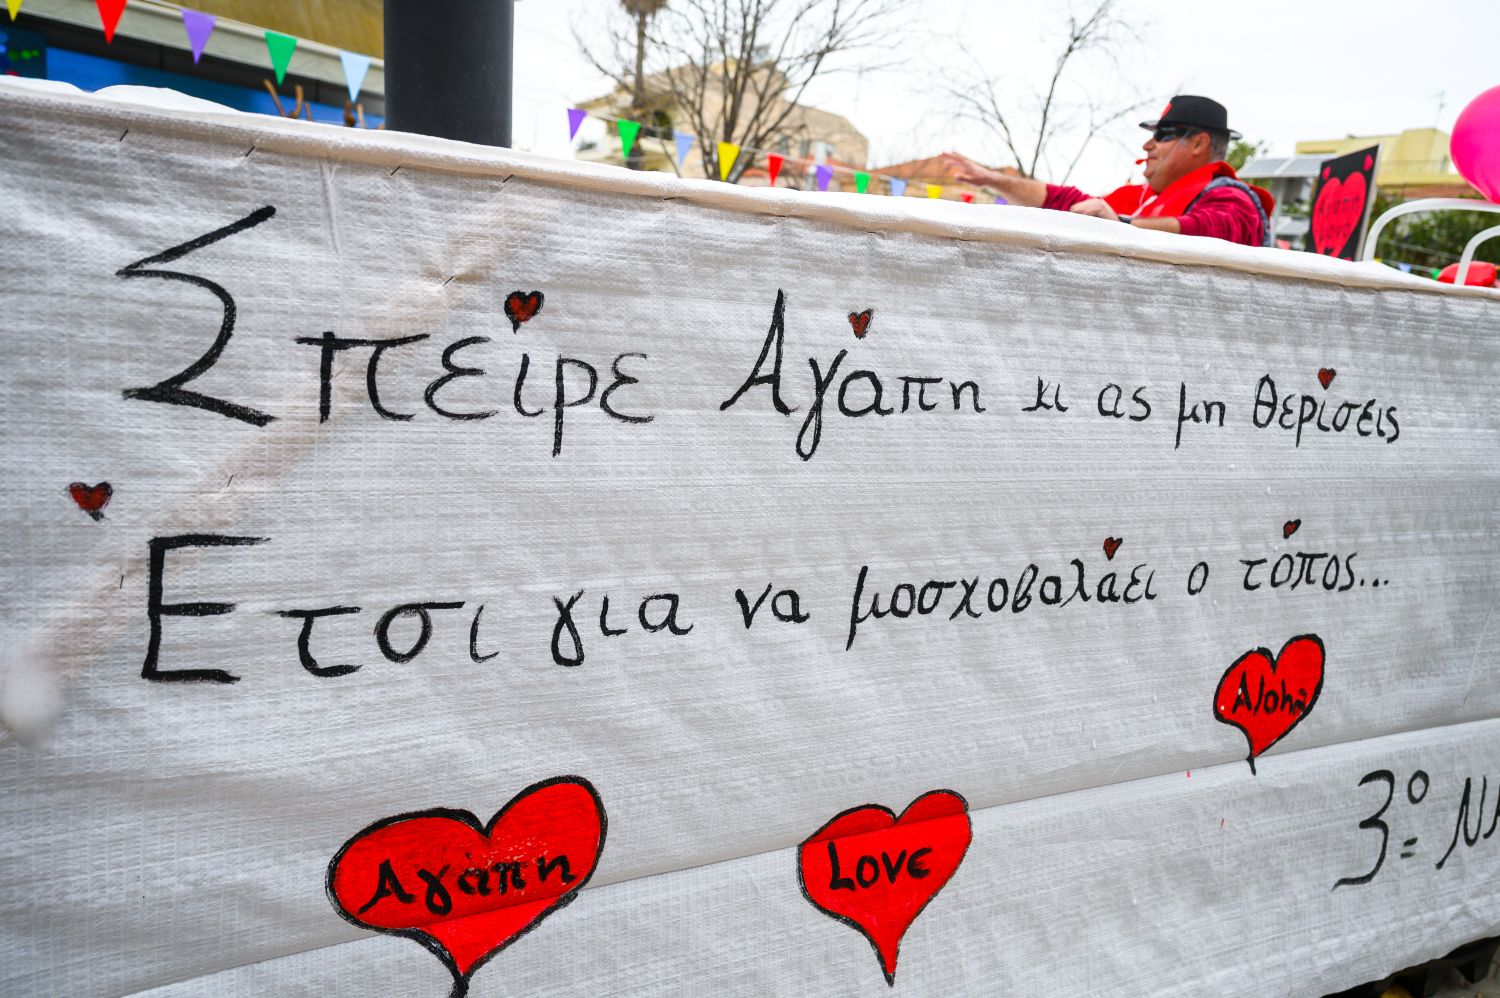 Σπείρε Αγάπη κι ας μη θερίσεις
Έτσι για να μοσχοβαλάει ο τόπος...
Aloha
Αγάπη
Love
3º